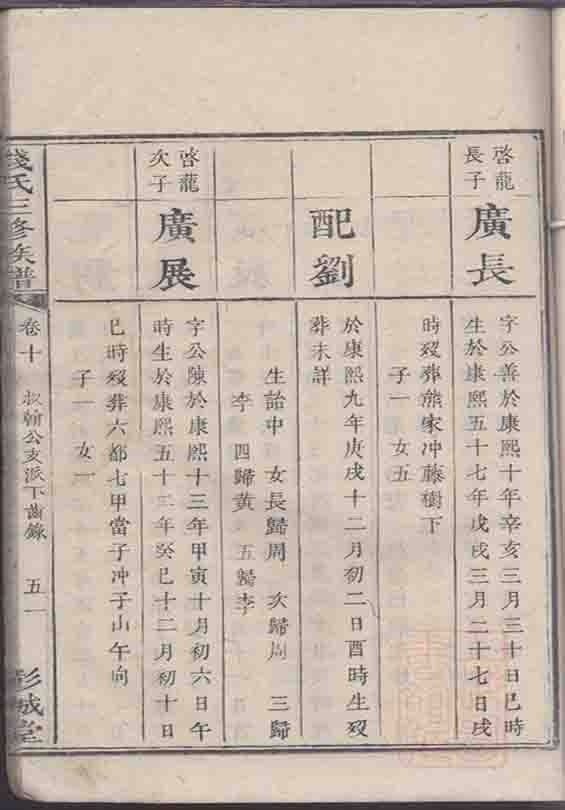 啓龍
長子
廣長
字公善於康熙十年辛亥三月三十日巳時
生於康熙五十七年戊戌三月二十七日戌
時歿葬熊家冲藤樹下
子一 女五
配劉
於康熙九年庚戌十二月初二日酉時生歿
葬未詳
生詒中 女長歸周 次歸周 三歸
李 四歸黄 五歸李
啓龍
次子
廣展
字公陳於康熙十三年甲寅十月初六日午
時生於康熙五十三年癸巳十二月初十日
巳時歿葬六都七甲當子冲子山午向
子一 女一
錢氏三修族譜
卷十
叔翰公支派下齒錄
五一
彭城堂